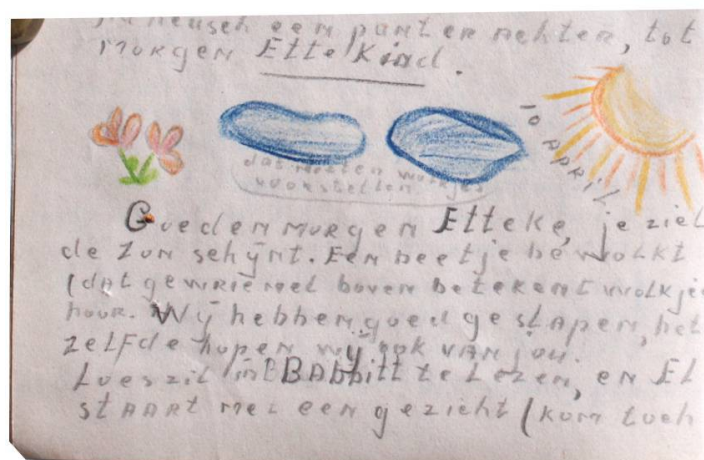 neusch een punt er achter, tot
morgen Ette Kind.
10 APRIL
dat moeten wolkjes
voorstellen
Goeden morgen Etteke, je ziet
de zon schijnt. Een beetje bewolkt
(dat gewriemel boven betekent wolkje
hoor. Wij hebben goed geslapen, het
zelfde hopen wij ook van jou.
Loes zit in Babbitt te lezen, en El
staart met een gezicht (kom toch